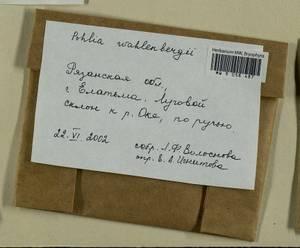 Pohlia wahlenbergii
Herbarium MW, Bryophyta
Рязанская обл.,
г. Елатьма. Луговой
склон к р. Оке, по ручью.
22. VI. 2002
собр. Л.Ф. Волоснова
опр. Е. А. Игнатова